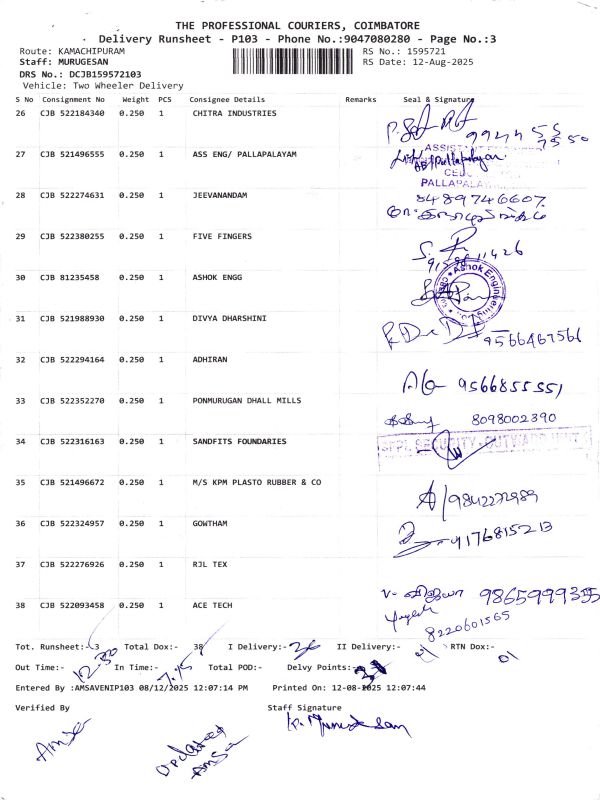 THE PROFESSIONAL COURIERS, COIMBATORE
Delivery Runsheet - P103 - Phone No.:9047080280 - Page No.:3
Route: KAMACHIPURAM RS No.: 1595721
Staff: MURUGESAN RS Date: 12-Aug-2025
DRS No.: DCJB159572103
Vehicle: Two Wheeler Delivery
S No Consignment No Weight PCS Consignee Details Remarks Seal & Signature
26 CJB 522184340 0.250 1 CHITRA INDUSTRIES
27 CJB 521496555 0.250 1 ASS ENG/ PALLAPALAYAM
28 CJB 522274631 0.250 1 JEEVANANDAM 8489746607
29 CJB 522380255 0.250 1 FIVE FINGERS
30 CJB 81235458 0.250 1 ASHOK ENGG Ashok Engineering
31 CJB 521988930 0.250 1 DIVYA DHARSHINI 9566467566
32 CJB 522294164 0.250 1 ADHIRAN 9566855551
33 CJB 522352270 0.250 1 PONMURUGAN DHALL MILLS 8098002390
34 CJB 522316163 0.250 1 SANDFITS FOUNDARIES SFPL SECURITY-OUTWARD
35 CJB 521496672 0.250 1 M/S KPM PLASTO RUBBER & CO
36 CJB 522324957 0.250 1 GOWTHAM 9176815213
37 CJB 522276926 0.250 1 RJL TEX
38 CJB 522093458 0.250 1 ACE TECH 8220601565
Tot. Runsheet:- 3 Total Dox:- 38 I Delivery:- II Delivery:- RTN Dox:-
Out Time:- 12.30 In Time:- 7.15 Total POD:- Delvy Points:-
Entered By :AMSAVENIP103 08/12/2025 12:07:14 PM Printed On: 12-08-2025 12:07:44
Verified By Staff Signature
Updated